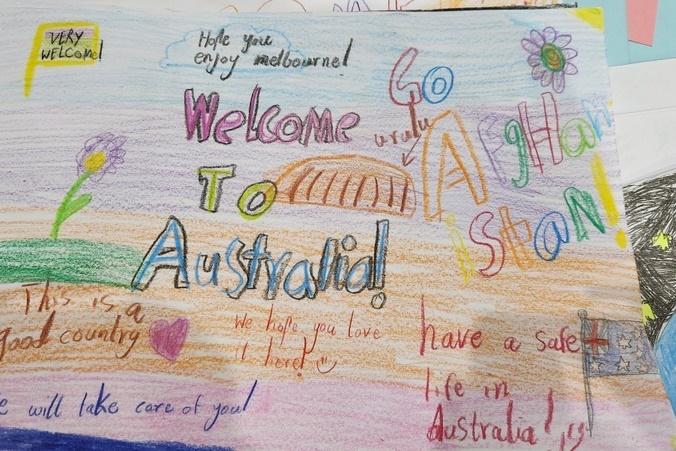 VERY
WELCOME!
Hope you
enjoy melbourne!
GO
AfgHan
istan!
Welcome
To
urulu
Australia!
This is a
good country
We hope you love
it here!
have a safe
life in
Australia!
will take care of you!